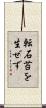 転石苔を
生ぜず